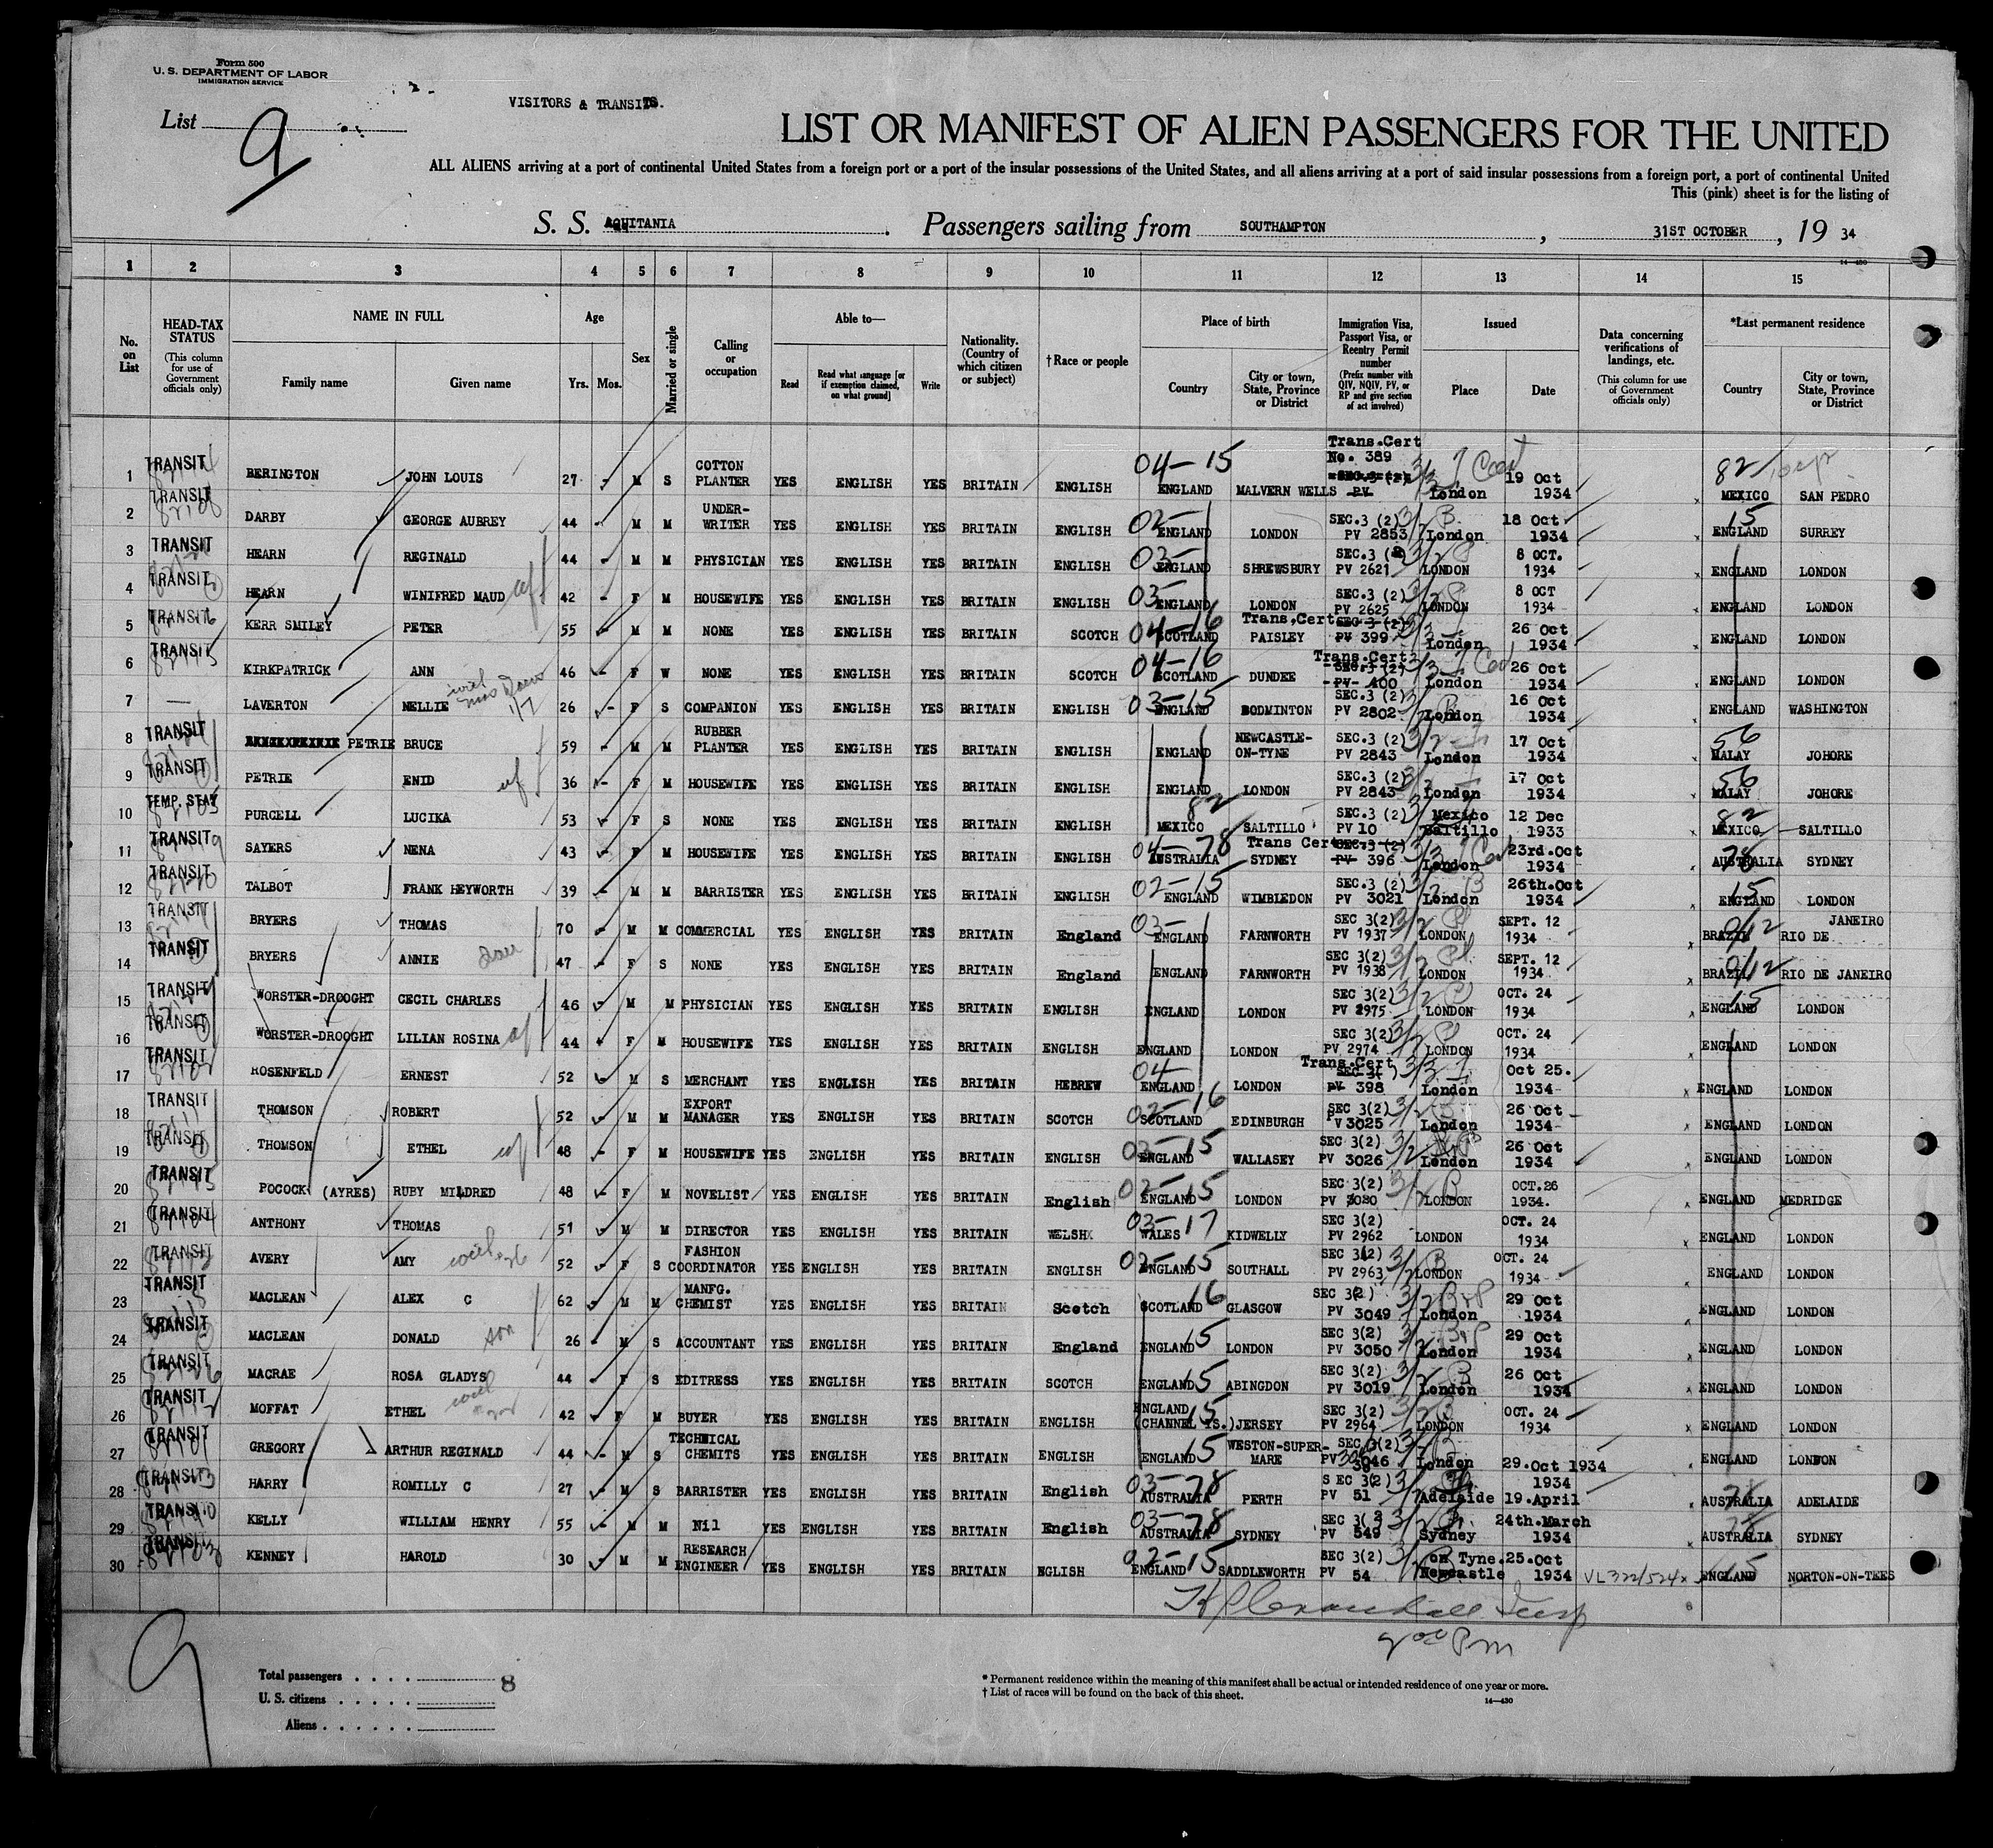 Form 500
U. S. DEPARTMENT OF LABOR
IMMIGRATION SERVICE
VISITORS & TRANSITS.
List 9
LIST OR MANIFEST OF ALIEN PASSENGERS FOR THE UNITED
ALL ALIENS arriving at a port of continental United States from a foreign port or a port of the insular possessions of the United States, and all aliens arriving at a port of said insular possessions from a foreign port, a port of continental United
This (pink) sheet is for the listing of
S. S. AQUITANIA Passengers sailing from SOUTHAMPTON, 31ST OCTOBER, 19 34
14-430
1 2 3 4 5 6 7 8 9 10 11 12 13 14 15
No. on List
HEAD-TAX STATUS (This column for use of Government officials only)
NAME IN FULL Family name Given name
Age Yrs. Mos.
Sex
Married or single
Calling or occupation
Able to— Read Read what language [or if exemption claimed, on what ground] Write
Nationality. (Country of which citizen or subject)
†Race or people
Place of birth Country City or town, State, Province or District
Immigration Visa, Passport Visa, or Reentry Permit number (Prefix number with QIV, NQIV, PV, or RP and give section of act involved)
Issued Place Date
Data concerning verifications of landings, etc. (This column for use of Government officials only)
*Last permanent residence Country City or town, State, Province or District
1 TRANSIT BERINGTON JOHN LOUIS 27 M S COTTON PLANTER YES ENGLISH YES BRITAIN ENGLISH 04-15 ENGLAND MALVERN WELLS Trans.Cert No. 389 London 19 Oct 1934 82 MEXICO SAN PEDRO
2 TRANSIT DARBY GEORGE AUBREY 44 M M UNDER-WRITER YES ENGLISH YES BRITAIN ENGLISH 02- ENGLAND LONDON SEC.3 (2) PV 2853 London 18 Oct 1934 15 ENGLAND SURREY
3 TRANSIT HEARN REGINALD 44 M M PHYSICIAN YES ENGLISH YES BRITAIN ENGLISH 03- ENGLAND SHREWSBURY SEC.3 (2) PV 2621 LONDON 8 OCT. 1934 ENGLAND LONDON
4 TRANSIT HEARN WINIFRED MAUD wf 42 F M HOUSEWIFE YES ENGLISH YES BRITAIN ENGLISH 03- ENGLAND LONDON SEC.3 (2) PV 2625 LONDON 8 OCT 1934 ENGLAND LONDON
5 TRANSIT KERR SMILEY PETER 55 M M NONE YES ENGLISH YES BRITAIN SCOTCH 04-16 SCOTLAND PAISLEY Trans.Cert SEC 3 (2) PV 399 London 26 Oct 1934 ENGLAND LONDON
6 TRANSIT KIRKPATRICK ANN 46 F W NONE YES ENGLISH YES BRITAIN SCOTCH 04-16 SCOTLAND DUNDEE Trans.Cert SEC.3 (2) PV 400 London 26 Oct 1934 ENGLAND LONDON
7 — LAVERTON NELLIE 26 F S COMPANION YES ENGLISH YES BRITAIN ENGLISH 03-15 ENGLAND BODMINTON SEC.3 (2) PV 2802 London 16 Oct 1934 ENGLAND WASHINGTON
8 TRANSIT PETRIE BRUCE 59 M M RUBBER PLANTER YES ENGLISH YES BRITAIN ENGLISH ENGLAND NEWCASTLE-ON-TYNE SEC.3 (2) PV 2843 London 17 Oct 1934 56 MALAY JOHORE
9 TRANSIT PETRIE ENID wf 36 F M HOUSEWIFE YES ENGLISH YES BRITAIN ENGLISH ENGLAND LONDON SEC.3 (2) PV 2843 London 17 Oct 1934 56 MALAY JOHORE
10 TEMP. STAY PURCELL LUCIKA 53 F S NONE YES ENGLISH YES BRITAIN ENGLISH 82 MEXICO SALTILLO SEC.3 (2) PV 10 Mexico Saltillo 12 Dec 1933 82 MEXICO SALTILLO
11 TRANSIT SAYERS NENA 43 F M HOUSEWIFE YES ENGLISH YES BRITAIN ENGLISH 04-78 AUSTRALIA SYDNEY Trans Cert SEC.3 (2) PV 396 London 23rd.Oct 1934 78 AUSTRALIA SYDNEY
12 TRANSIT TALBOT FRANK HEYWORTH 39 M M BARRISTER YES ENGLISH YES BRITAIN ENGLISH 02-15 ENGLAND WIMBLEDON SEC.3 (2) PV 3021 London 26th.Oct 1934 15 ENGLAND LONDON
13 TRANSIT BRYERS THOMAS 70 M M COMMERCIAL YES ENGLISH YES BRITAIN England 03- ENGLAND FARNWORTH SEC 3(2) PV 1937 LONDON SEPT. 12 1934 BRAZIL RIO DE JANEIRO
14 TRANSIT BRYERS ANNIE 47 F S NONE YES ENGLISH YES BRITAIN England ENGLAND FARNWORTH SEC 3(2) PV 1938 LONDON SEPT. 12 1934 BRAZIL RIO DE JANEIRO
15 TRANSIT WORSTER-DROOGHT CECIL CHARLES 46 M M PHYSICIAN YES ENGLISH YES BRITAIN ENGLISH ENGLAND LONDON SEC 3(2) PV 2975 LONDON OCT. 24 1934 15 ENGLAND LONDON
16 TRANSIT WORSTER-DROOGHT LILIAN ROSINA wf 44 F M HOUSEWIFE YES ENGLISH YES BRITAIN ENGLISH ENGLAND LONDON SEC 3(2) PV 2974 LONDON OCT. 24 1934 ENGLAND LONDON
17 TRANSIT ROSENFELD ERNEST 52 M S MERCHANT YES ENGLISH YES BRITAIN HEBREW 04 ENGLAND LONDON Trans.Cert PV 398 London Oct 25. 1934 ENGLAND LONDON
18 TRANSIT THOMSON ROBERT 52 M M EXPORT MANAGER YES ENGLISH YES BRITAIN SCOTCH 02-16 SCOTLAND EDINBURGH SEC 3(2) PV 3025 London 26 Oct 1934 ENGLAND LONDON
19 TRANSIT THOMSON ETHEL wf 48 F M HOUSEWIFE YES ENGLISH YES BRITAIN ENGLISH 03-15 ENGLAND WALLASEY SEC 3(2) PV 3026 London 26 Oct 1934 ENGLAND LONDON
20 TRANSIT POCOCK (AYRES) RUBY MILDRED 48 F M NOVELIST YES ENGLISH YES BRITAIN English 02-15 ENGLAND LONDON SEC 3(2) PV 3020 LONDON OCT.26 1934. ENGLAND MEDRIDGE
21 TRANSIT ANTHONY THOMAS 51 M M DIRECTOR YES ENGLISH YES BRITAIN WELSH 03-17 WALES KIDWELLY SEC 3(2) PV 2962 LONDON OCT. 24 1934 ENGLAND LONDON
22 TRANSIT AVERY AMY 52 F S FASHION COORDINATOR YES ENGLISH YES BRITAIN ENGLISH 02-15 ENGLAND SOUTHALL SEC 3(2) PV 2963 LONDON OCT. 24 1934 ENGLAND LONDON
23 TRANSIT MACLEAN ALEX C 62 M M MANFG. CHEMIST YES ENGLISH YES BRITAIN Scotch 16 SCOTLAND GLASGOW SEC 3(2) PV 3049 London 29 Oct 1934 ENGLAND LONDON
24 TRANSIT MACLEAN DONALD son 26 M S ACCOUNTANT YES ENGLISH YES BRITAIN England ENGLAND 15 LONDON SEC 3(2) PV 3050 London 29 Oct 1934 ENGLAND LONDON
25 TRANSIT MACRAE ROSA GLADYS 44 F S EDITRESS YES ENGLISH YES BRITAIN SCOTCH ENGLAND 15 ABINGDON SEC 3(2) PV 3019 London 26 Oct 1934 ENGLAND LONDON
26 TRANSIT MOFFAT ETHEL 42 F M BUYER YES ENGLISH YES BRITAIN ENGLISH ENGLAND 15 (CHANNEL IS.) JERSEY SEC 3(2) PV 2964 LONDON OCT. 24 1934 ENGLAND LONDON
27 TRANSIT GREGORY ARTHUR REGINALD 44 M S TECHNICAL CHEMITS YES ENGLISH YES BRITAIN ENGLISH ENGLAND 15 WESTON-SUPER-MARE SEC 3(2) PV 3046 London 29.Oct 1934 ENGLAND LONDON
28 TRANSIT HARRY ROMILLY C 27 M S BARRISTER YES ENGLISH YES BRITAIN English 03-78 AUSTRALIA PERTH SEC 3(2) PV 51 Adelaide 19.April 1934 78 AUSTRALIA ADELAIDE
29 TRANSIT KELLY WILLIAM HENRY 55 M M Nil YES ENGLISH YES BRITAIN English 03-78 AUSTRALIA SYDNEY SEC 3(2 PV 549 Sydney 24th.March 1934 78 AUSTRALIA SYDNEY
30 TRANSIT KENNEY HAROLD 30 M M RESEARCH ENGINEER YES ENGLISH YES BRITAIN NGLISH 02-15 ENGLAND SADDLEWORTH SEC 3(2) PV 54 on Tyne. Newcastle 25.Oct 1934 15 ENGLAND NORTON-ON-TEES
9
Total passengers
U. S. citizens
Aliens
8
* Permanent residence within the meaning of this manifest shall be actual or intended residence of one year or more.
† List of races will be found on the back of this sheet.
14-430